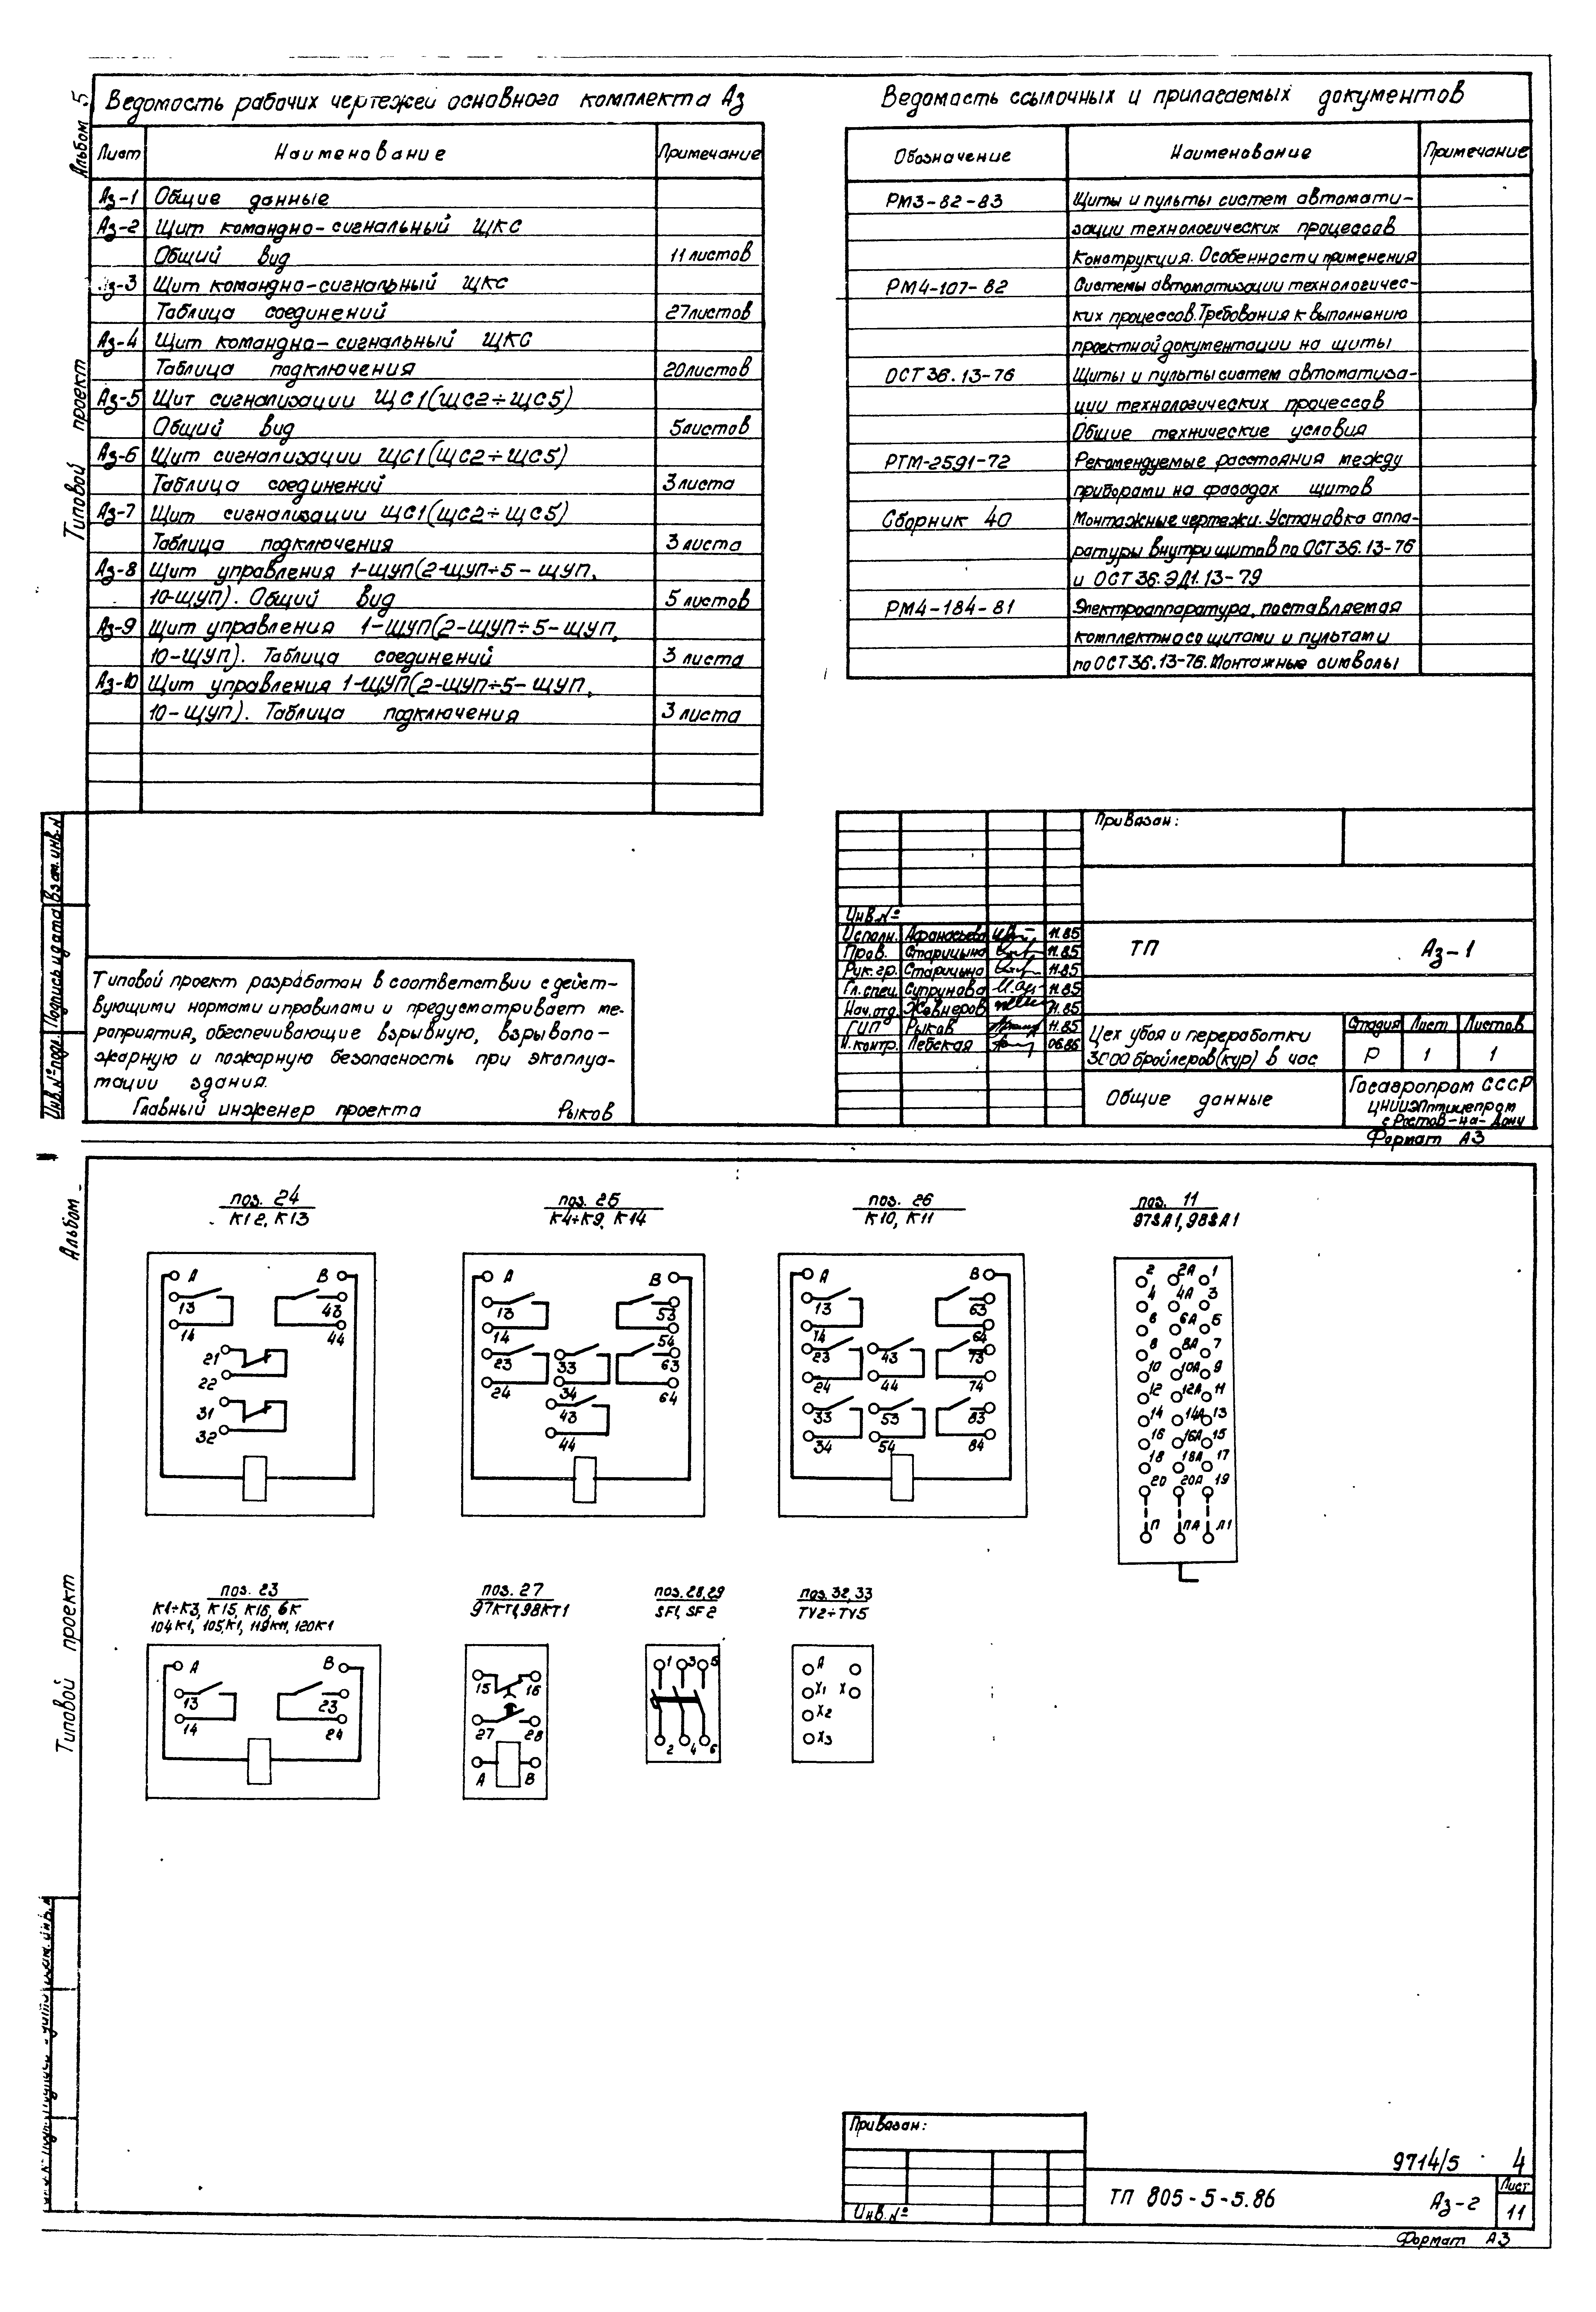 Альбом 5.
Типовой проект
Ведомость рабочих чертежей основного комплекта Аз
Лист Наименование Примечание
Аз-1 Общие данные
Аз-2 Щит командно-сигнальный ЩКС
Общий вид 11 листов
Аз-3 Щит командно-сигнальный ЩКС
Таблица соединений 27 листов
Аз-4 Щит командно-сигнальный ЩКС
Таблица подключения 20 листов
Аз-5 Щит сигнализации ЩС1(ЩС2÷ЩС5)
Общий вид 5 листов
Аз-6 Щит сигнализации ЩС1(ЩС2÷ЩС5)
Таблица соединений 3 листа
Аз-7 Щит сигнализации ЩС1(ЩС2÷ЩС5)
Таблица подключения 3 листа
Аз-8 Щит управления 1-ЩУП(2-ЩУП÷5-ЩУП,
10-ЩУП). Общий вид 5 листов
Аз-9 Щит управления 1-ЩУП(2-ЩУП÷5-ЩУП,
10-ЩУП). Таблица соединений 3 листа
Аз-10 Щит управления 1-ЩУП(2-ЩУП÷5-ЩУП,
10-ЩУП). Таблица подключения 3 листа
Ведомость ссылочных и прилагаемых документов
Обозначение Наименование Примечание
РМ3-82-83 Щиты и пульты систем автомати-
зации технологических процессов
Конструкция. Особенности применения
РМ4-107-82 Системы автоматизации технологичес-
ких процессов. Требования к выполнению
проектной документации на щиты
ОСТ 36.13-76 Щиты и пульты систем автоматиза-
ции технологических процессов
Общие технические условия
РТМ-2591-72 Рекомендуемые расстояния между
приборами на фасадах щитов
Сборник 40 Монтажные чертежи. Установка аппа-
ратуры внутри щитов по ОСТ 36.13-76
и ОСТ 36.ЭД1.13-79
РМ4-184-81 Электроаппаратура, поставляемая
комплектно со щитами и пультами
по ОСТ 36.13-76. Монтажные символы
Инв.№ подл. Подпись и дата Взам. инв. №
Типовой проект разработан в соответствии с дейст-
вующими нормами и правилами и предусматривает ме-
роприятия, обеспечивающие взрывную, взрывопо-
жарную и пожарную безопасность при эксплуа-
тации здания.
Главный инженер проекта Рыков
Привязан:
Инв.№
Исполн. Афанасьева 11.85
Пров. Старицына 11.85
Рук.гр. Старицына 11.85
Гл.спец. Супрунова 11.85
Нач.отд. Жевнеров 11.85
ГИП Рыков 11.85
Н.контр. Лебская 06.86
ТП Аз-1
Цех убоя и переработки
3000 бройлеров(кур) в час
Стадия Лист Листов
Р 1 1
Общие данные
Госагропром СССР
ЦНИИЭПптицепром
г. Ростов-на-Дону
Формат А3
Альбом
Типовой проект
поз. 24
К12, К13
А В
13 43
14 44
21
22
31
32
поз. 25
К4÷К9, К14
А В
13 53
14 54
23 33 63
24 34 64
43
44
поз. 26
К10, К11
А В
13 63
14 64
23 43 73
24 44 74
33 53 83
34 54 84
поз. 11
97SA1, 98SA1
2 2А 1
4 4А 3
6 6А 5
8 8А 7
10 10А 9
12 12А 11
14 14А 13
16 16А 15
18 18А 17
20 20А 19
П ПА Л1
поз. 23
К1÷К3, К15, К16, 6К
104К1, 105К1, 119К1, 120К1
А В
13 23
14 24
поз. 27
97КТ1, 98КТ1
15 16
27 28
А В
поз. 28, 29
SF1, SF2
1 3 5
2 4 6
поз. 32, 33
TV2÷TV5
А
Х1 Х
Х2
Х3
Привязан:
Инв.№
9714/5 4
ТП 805-5-5.86 Аз-2
Лист
11
Формат А3